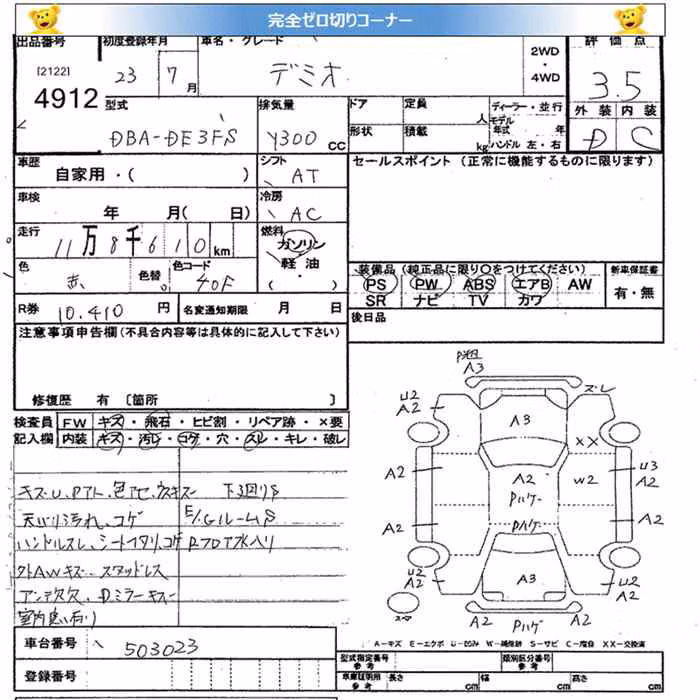 完全ゼロ切りコーナー
出品番号 初度登録年月 車名・グレード 評価点
[2122] 23 年 7 月 デミオ 2WD ・ 4WD 3.5
4912 外装 内装
型式 排気量 ドア 定員 人 ディーラー・並行
DBA-DE3FS 1300 CC 形状 積載 kg モデル年式 年 ハンドル 左・右 D C
車歴 シフト セールスポイント (正常に機能するものに限ります)
自家用・( ) AT
車検 冷房
年 月( 日) AC
走行 燃料
11万8千610km ガソリン
色 色替 色コード 軽油 装備品 (純正品に限り○をつけてください) 新車保証書
赤 40F ・( ) PS PW ABS エアB AW 有・無
SR ナビ TV カワ
R券 10,410円 名変通知期限 月 日 後日品
注意事項申告欄 (不具合内容等は具体的に記入して下さい)
修復歴 有 〔箇所 〕
検査員 FW キズ・飛石・ヒビ割・リペア跡・×要
記入欄 内装 キズ・汚レ・コゲ・穴・スレ・キレ・破レ
キズU、Pアト、色アセ、ウスキズー 下回りS
天バリ汚れ、コゲ E/GルームS
ハンドルスレ、シートヘタリ、コゲ Pフロア水入り
外AWキズー スタッドレス
アンテ欠欠 Dミラーキズー
室内臭い有り
A3
U2 A2 ズレ
A3
XX
A2 A2 W2 U3 A2
Pハゲ
A2 Pハゲ A2
U2 A2 A3 U2 A2
A2 Pハゲ A2
A-キズ E-エクボ U-凹み W-補修跡 S-サビ C-腐食 XX-交換済
車台番号 503023
登録番号
型式指定番号 参考 類別区分番号 参考
車庫証明用 参考 長さ cm 幅 cm 高さ cm